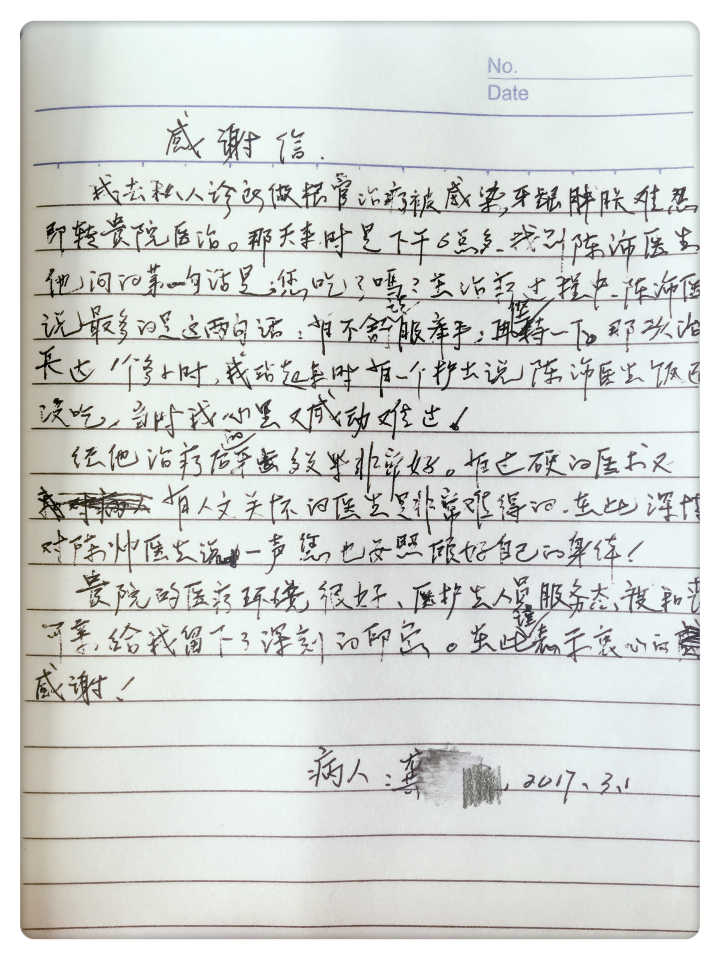 No.
Date
感谢信.
我去私人诊所做根管治疗被感染,牙龈肿胀难忍
即转贵院医治。那天来时是下午6点多.我到陈沛医生
他问的第一句话是:您吃了吗?在治疗过程中.陈沛医
说最多的是这两句话:有不舒服举手;再坚持一下。那次治
长达1个多小时,我站起来时有一个护士说陈沛医生饭还
没吃,当时我心里又感动又难过!
经他治疗后的效果非常好。有过硬的医术又
有人文关怀的医生是非常难得的.在此深情
对陈沛医生说一声您也要照顾好自己的身体!
贵院的医疗环境很好、医护人员服务态度和蔼
可亲,给我留下了深刻的印象。在此表示衷心的
感谢!
病人:龚 2017.3.1